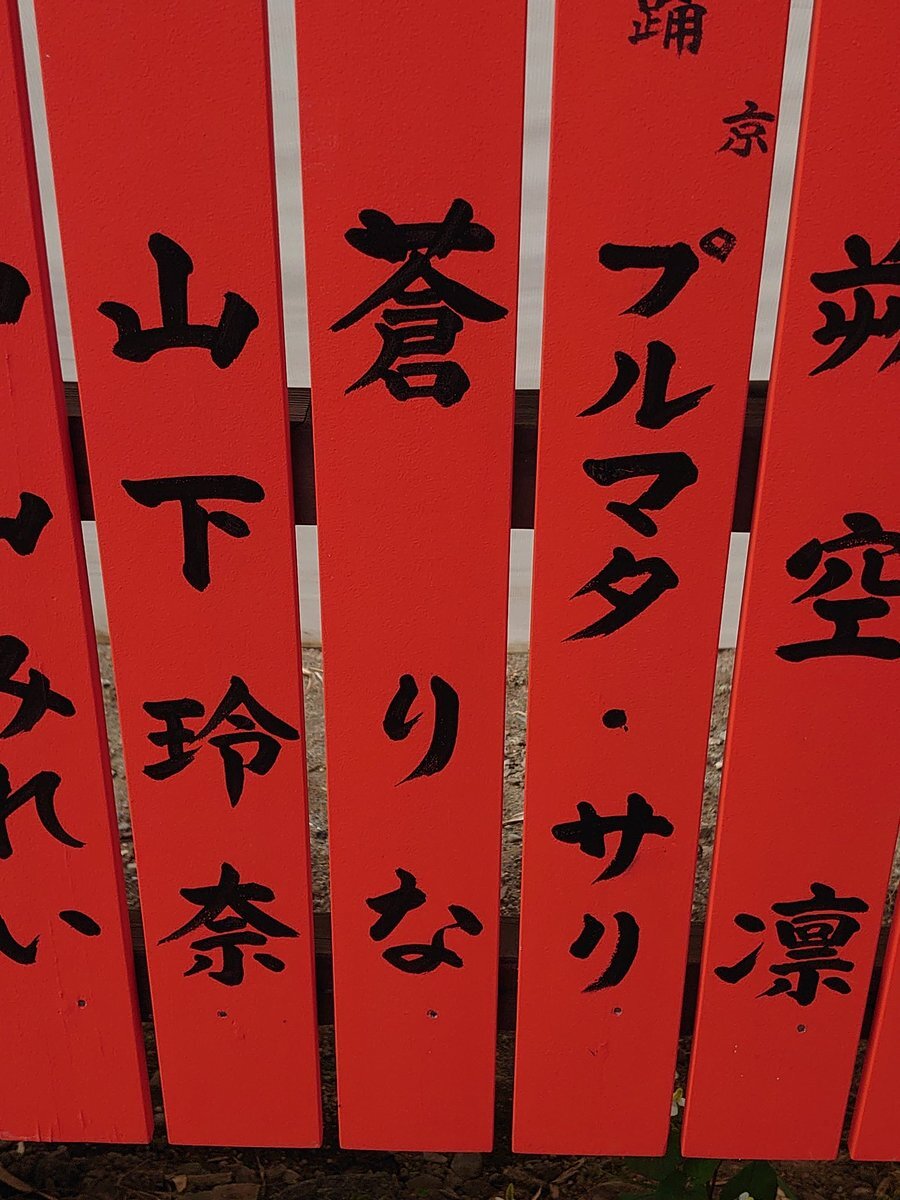 空凛
踊
京
プルマタ・サリ
蒼りな
山下玲奈
みれい